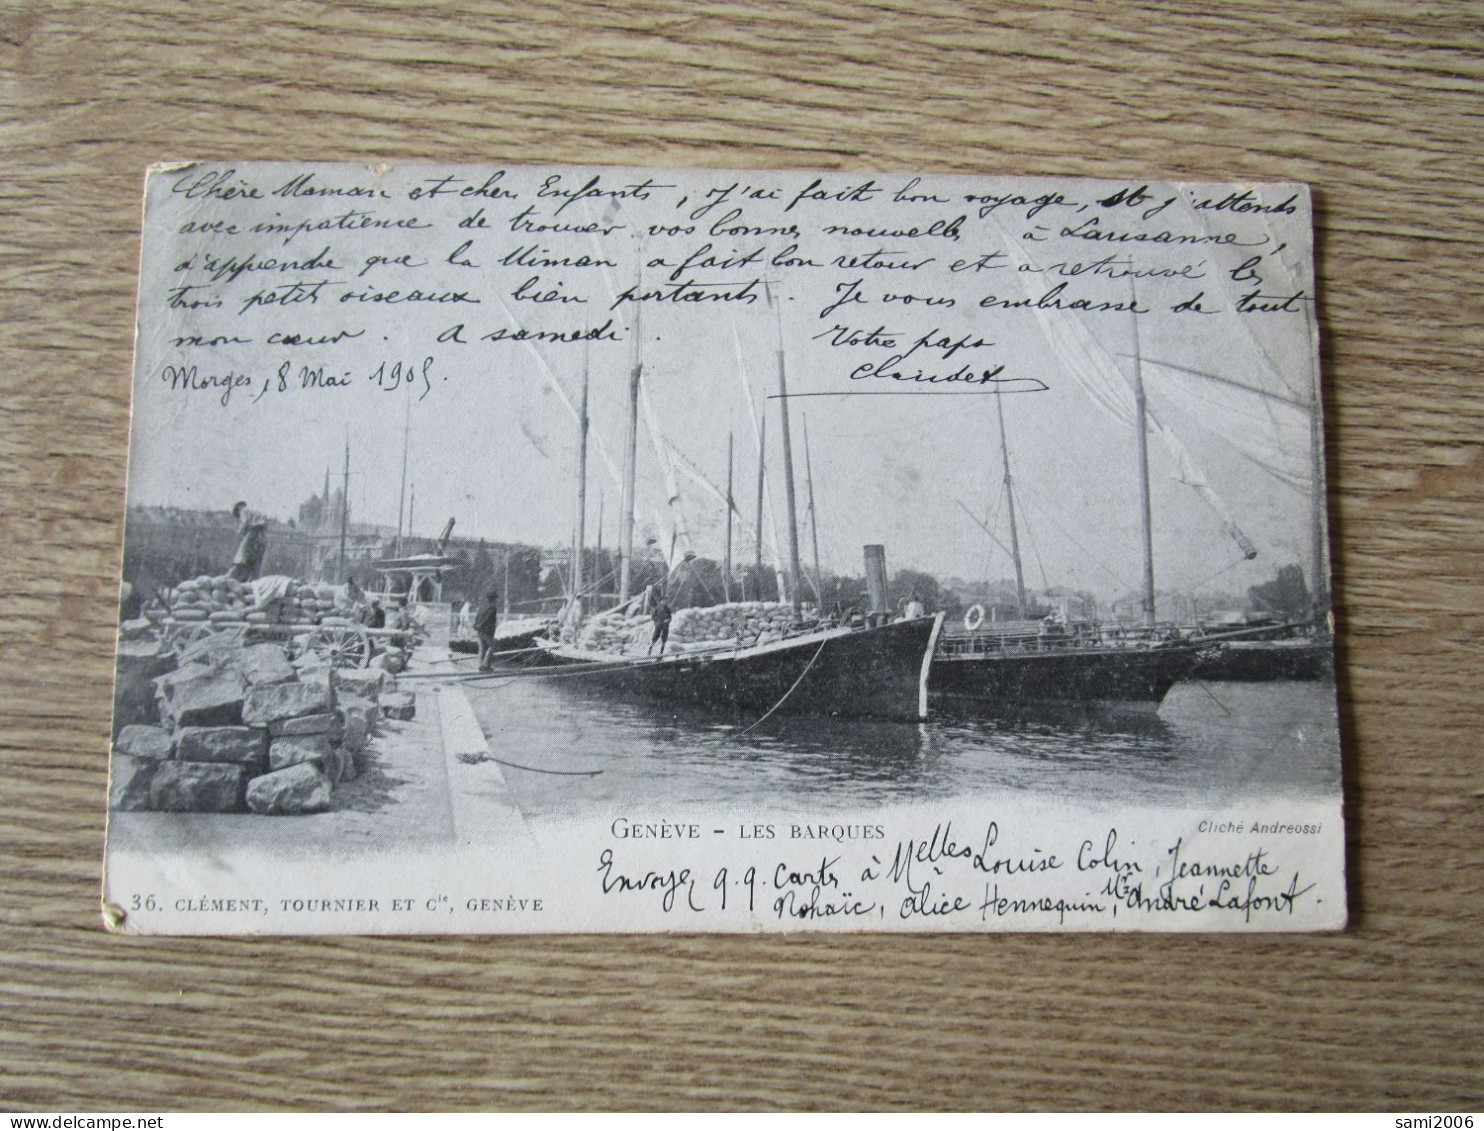 Chère Maman et cher Enfants, J'ai fait bon voyage, et j'attends
avec impatience de trouver vos bonnes nouvelles à Lausanne,
d'apprendre que la Miman a fait bon retour et a retrouvé les
trois petits oiseaux bien portants. Je vous embrasse de tout
mon cœur. A samedi. Votre papa
Claudet
Morges, 8 Mai 1905.
GENÈVE - LES BARQUES
Cliché Andreossi
Envoyez q.q. cartes à Melles Louise Colin, Jeannette
Nohaïc, Alice Hennequin, Mr André Lafont.
36. CLÉMENT, TOURNIER ET Cie, GENÈVE
delcampe.net
sami2006